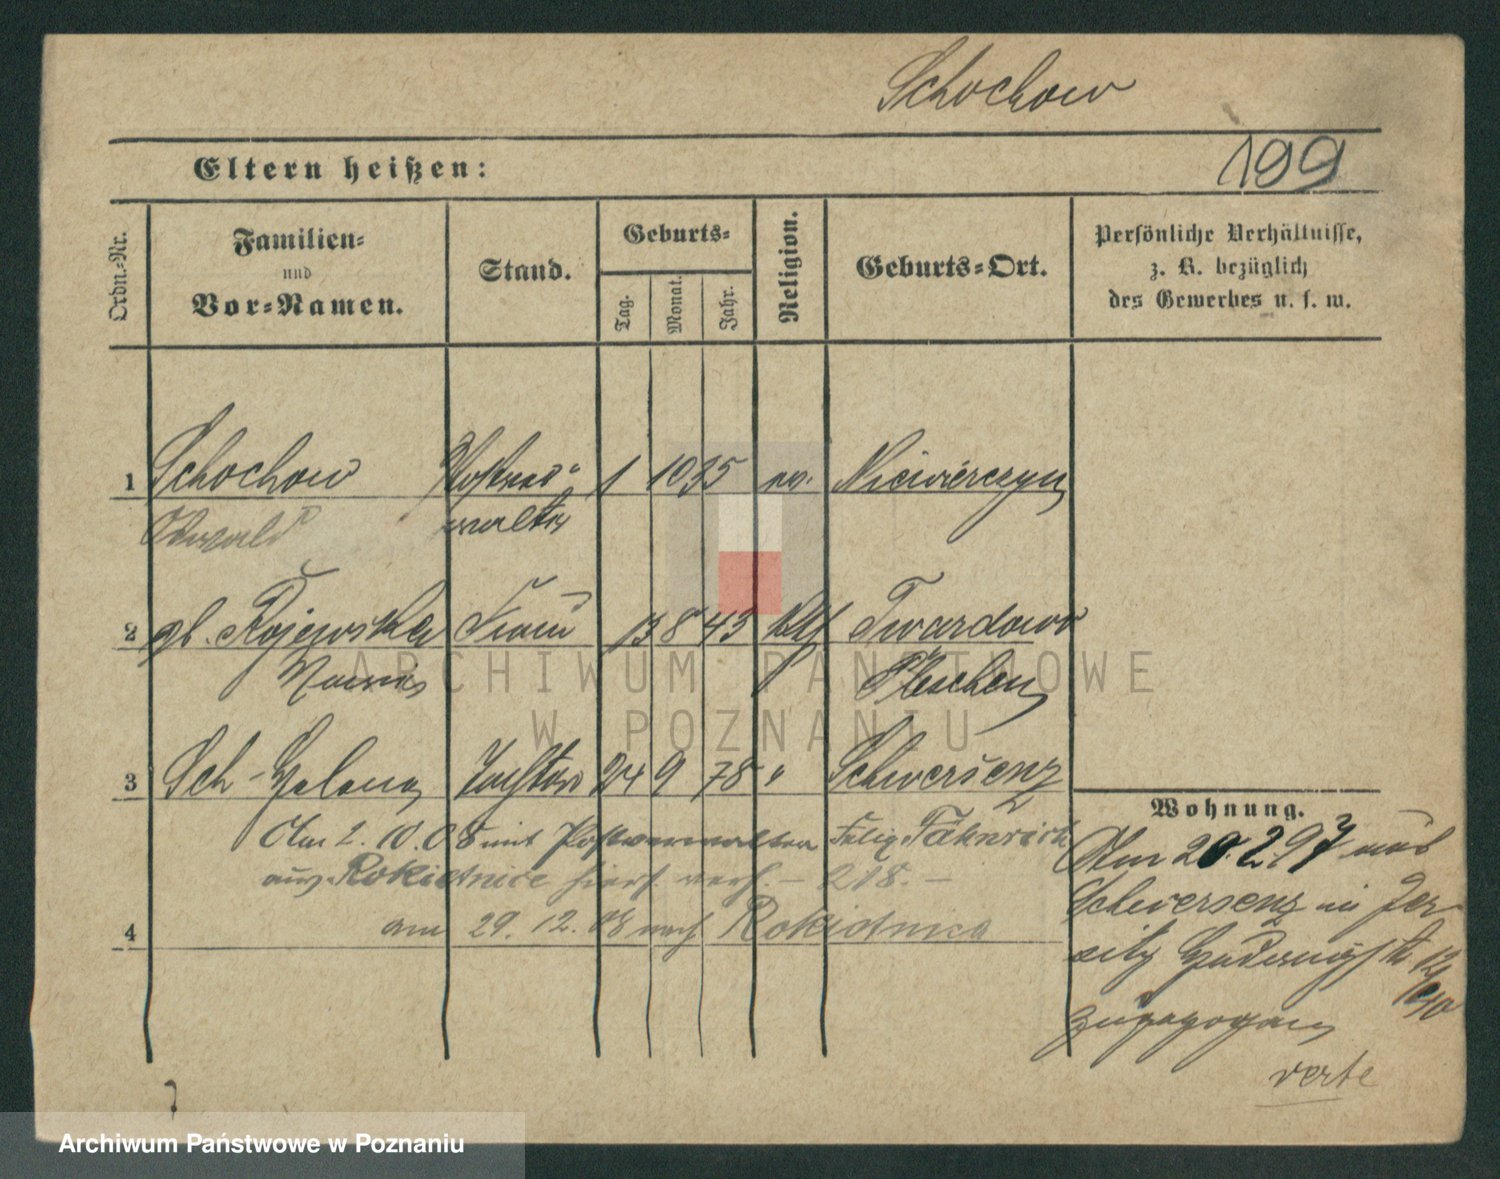 Schochow
199
Eltern heißen:
Ordn.-Nr.
Familien-
und
Vor-Namen.
Stand.
Geburts-
Tag.
Monat.
Jahr.
Religion.
Geburts-Ort.
Persönliche Verhältnisse,
z. B. bezüglich
des Gewerbes u. s. w.
1 Schochow Postver- 1 10 35 ev. Niciwierczyn
Oswald walter
2 gb. Rojewska Frau 13 8 43 kth Twardowo
Pleschen
3 Sch- Helena Tochter 24 9 78 " Schwersenz
Am 2. 10. 08 mit Postverwalter Felix Fähnrich
aus Rokietnice hierh. verh. - 218. -
4 am 29. 12. 08 nach Rokietnica
Wohnung.
Am 20.2.97 aus
Schwersenz in Jer-
sitz
zugezogen
verte
ARCHIWUM PAŃSTWOWE
W POZNANIU
Archiwum Państwowe w Poznaniu